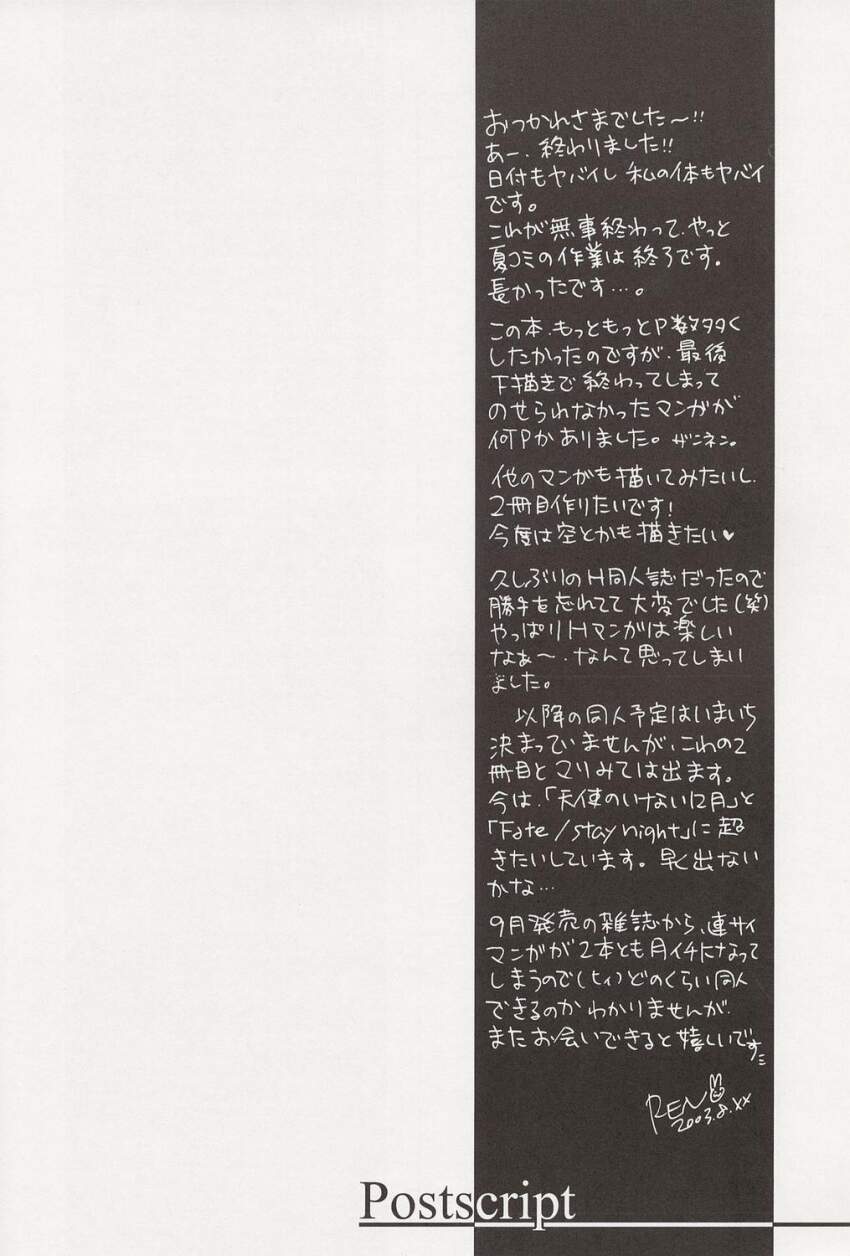 おつかれさまでした〜!!
あー、終わりました!!
日付もヤバイし 私の体もヤバイ
です。
これが無事終わって、やっと
夏コミの作業は終了です。
長かったです…。
この本、もっともっとP数タタく
したかったのですが、最後
下描きで終わってしまって
のせられなかったマンガが
何Pかありました。ザンネン。
他のマンガも描いてみたいし、
2冊目作りたいです!
今度は空とかも描きたい♥
久しぶりのH同人誌だったので
勝手を忘れてて大変でした(笑)
やっぱりHマンガは楽しい
なぁ〜、なんて思ってしまい
ました。
以降の同人予定はいまいち
決まっていませんが、これの2
冊目とマリみては出ます。
今は、「天使のいない12月」と
「Fate/stay night」に超
きたいしています。早く出ない
かな…
9月発売の雑誌から、連サイ
マンガが2本とも月イチになって
しまうので(ヒィ)どのくらい同人
できるのかわかりませんが、
またお会いできると嬉しいです
REN
2003.8.xx
Postscript